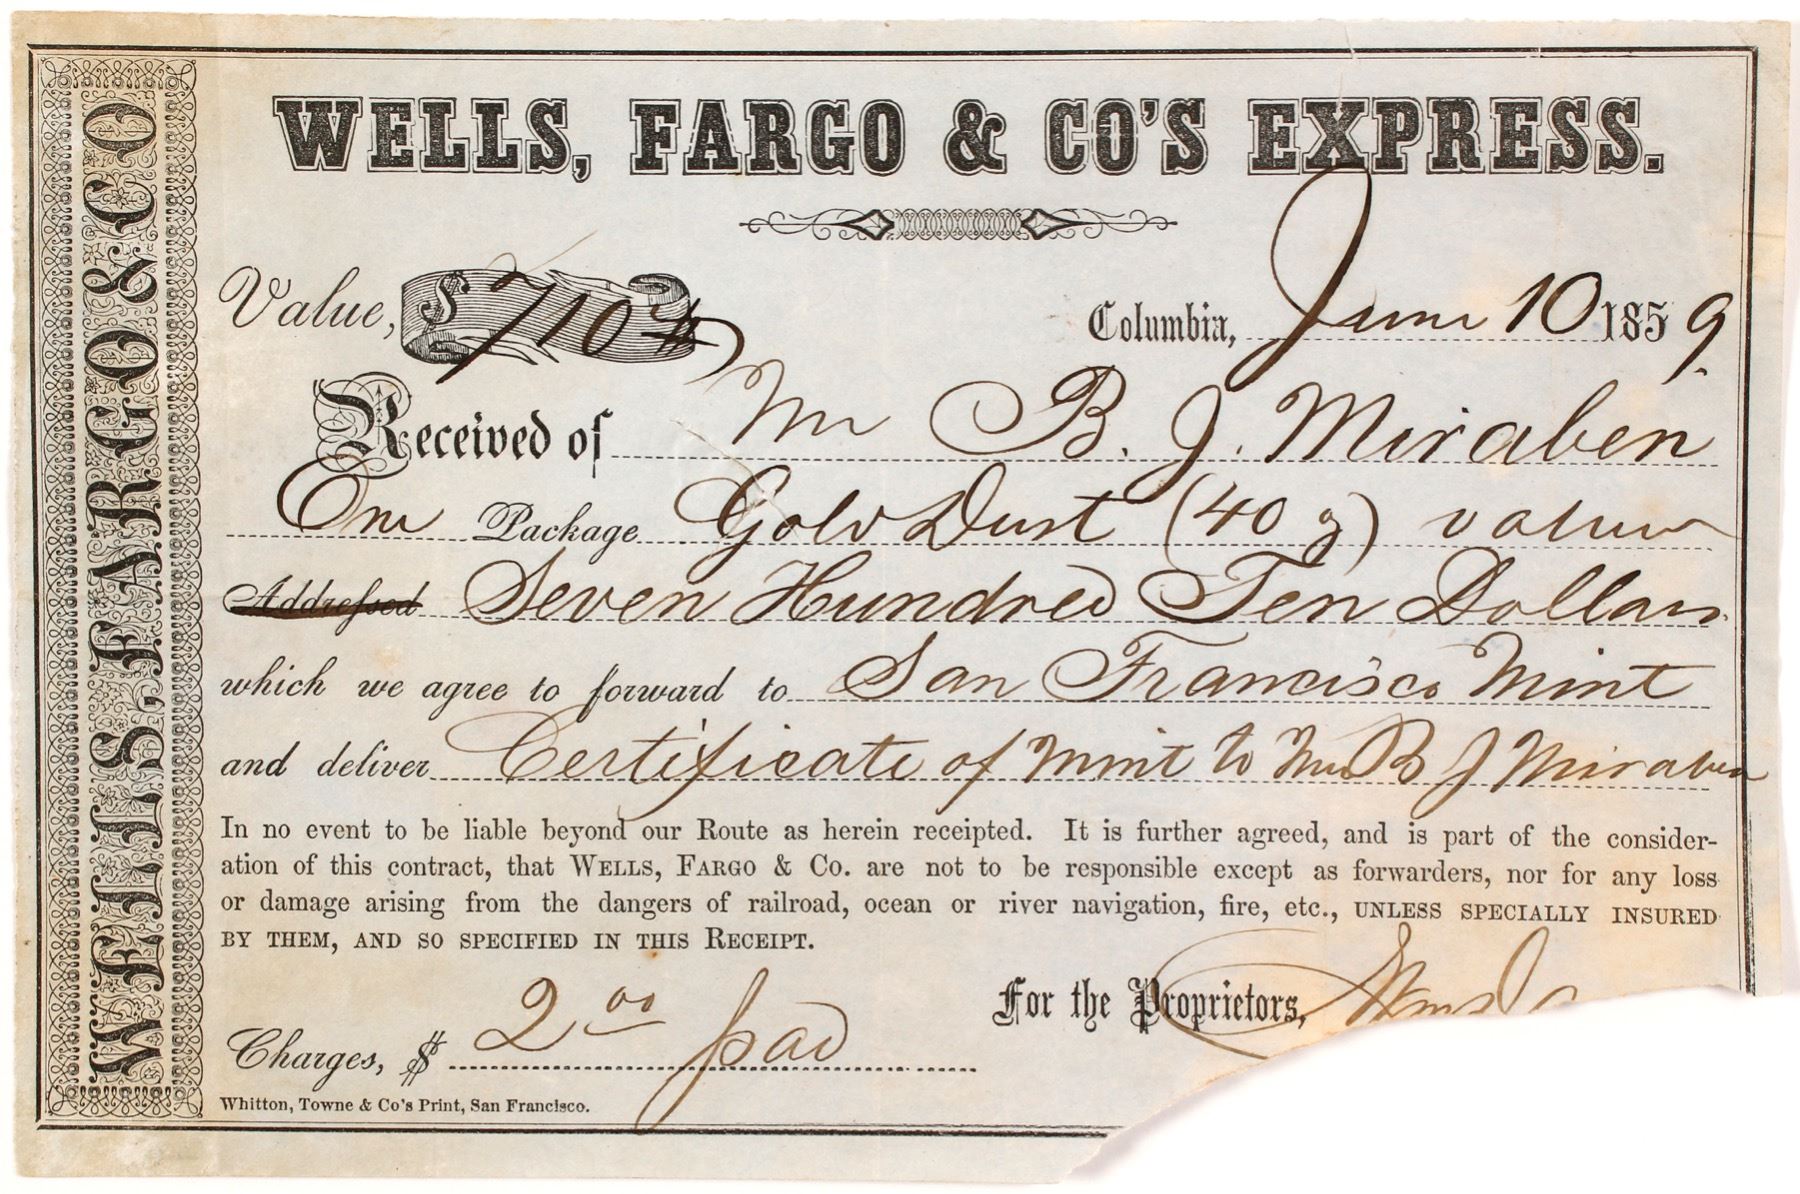 WELLS, FARGO & CO
WELLS, FARGO & CO'S EXPRESS.
Value, $ 710
Columbia, June 10 1859.
Received of Mr B. J. Miraben
One Package Gold Dust (40 z) value
Addressed Seven Hundred Ten Dollars
which we agree to forward to San Francisco Mint
and deliver Certificate of Mint to Mr B J Miraben
In no event to be liable beyond our Route as herein receipted. It is further agreed, and is part of the consider-
ation of this contract, that WELLS, FARGO & CO. are not to be responsible except as forwarders, nor for any loss
or damage arising from the dangers of railroad, ocean or river navigation, fire, etc., UNLESS SPECIALLY INSURED
BY THEM, AND SO SPECIFIED IN THIS RECEIPT.
For the Proprietors,
Charges, $ 2 00 pad
Whitton, Towne & Co's Print, San Francisco.